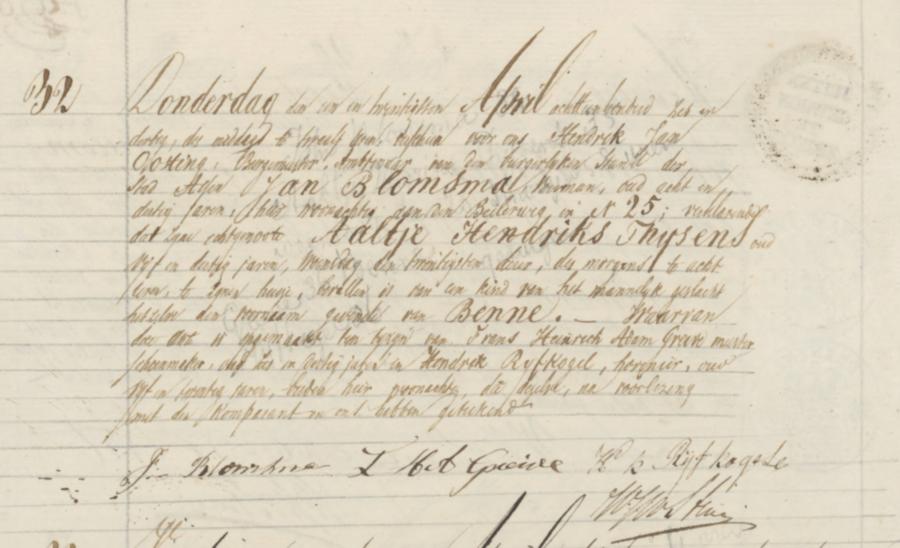 32
Donderdag den een en twintigsten April achttienhonderd
dertig, des middags te twaalf uren, voor ons Hendrik Jan
Oosting, Burgemeester, Ambtenaar van den burgerlyken stand der
stad Assen Jan Blomsma, oud acht en
dertig jaren, alhier woonachtig aan den Beilerweg in N 25; verklarende
dat zyne echtgenoote Aaltje Hendriks Thysens oud
vyf en dertig jaren, den twintigsten dezer, des morgens te acht
uren, te zynen huize, bevallen is van een kind van het mannelyk geslacht
hetwelk den voornaam gegeven van Benne. — Waarvan
deze acte is opgemaakt ten byzyn van Frans Heinrich Adam Greve meester
schoenmaker, oud en dertig jaren en Hendrik Ryfkogel, oud
vyf en jaren, beiden hier woonachtig, die dezelve, na voorlezing
met den Komparant en ons hebben geteekend
J. Blomsma F H A Greive H Ryfkogel